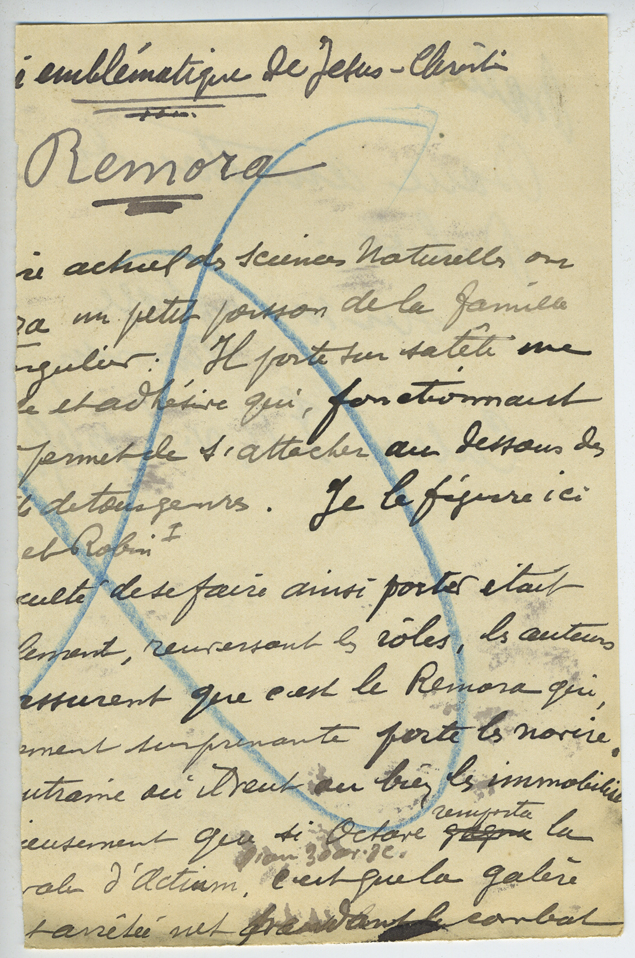 i emblématique de Jesus-Christ
Remora
re actuel des Sciences Naturelles on
ra un petit poisson de la famille
ngulier. Il porte sur sa tête une
e et adhésive qui, fonctionnant
permet de s'attacher au dessous des
ts de tous genres. Je le figure ici
et Robin I
culté de se faire ainsi porter était
lement, renversant les rôles, les auteurs
assurent que c'est le Remora qui,
ment surprenante porte les navire.
ntraine où il veut ou bien les immobilise
ieusement que si Octave gagna remporta la
l'an 30 av. JC.
vale d'Actium, c'est que la galère
t arrêtée net pendant le combat